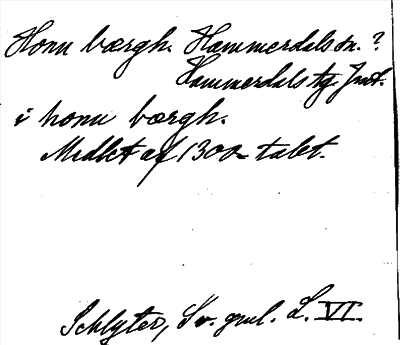 Honu bærgh. Hammerdals sn.?
Hammerdals tg. Jmt.
i honu bærgh.
Midlet af 1300-talet.
Schlyter, Sv. gml. L. VI.